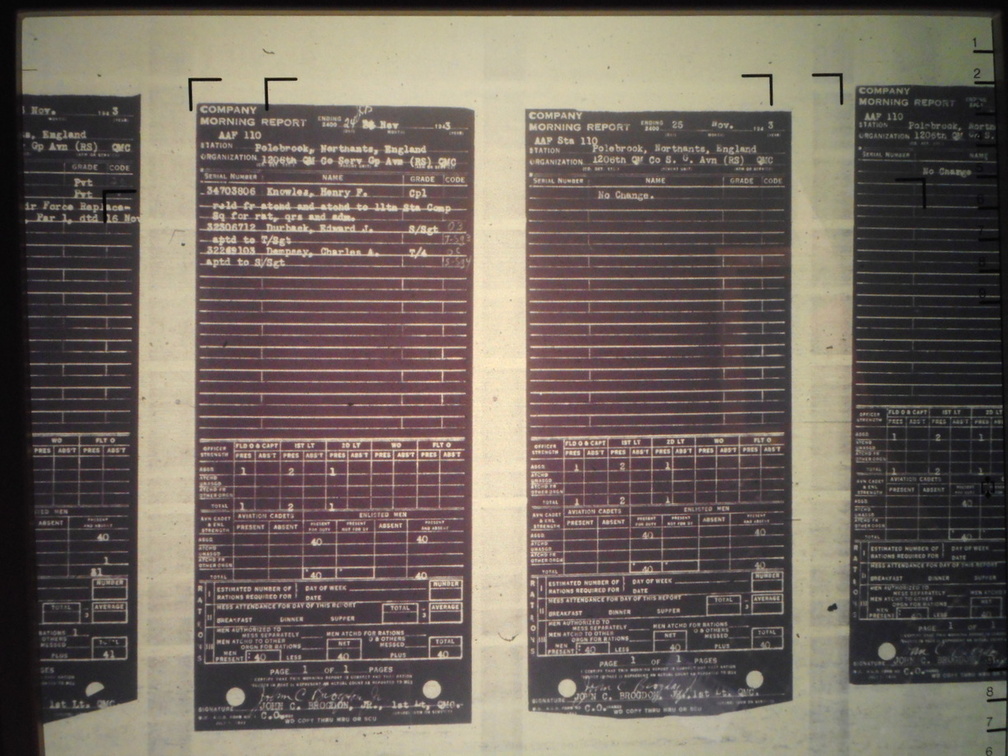 Nov. 194 3
England
Op Avn (RS) QMC
GRADE CODE
Pvt
Pvt
ir Force Replace-
, Par 1, dtd 16 Nov
WO FLT O
PRES ABS'T PRES ABS'T
ABSENT
40
1
NUMBER
TOTAL AVERAGE
PLUS 41
1st Lt. QMC
COMPANY
MORNING REPORT ENDING 2400 24 Nov 1943
AAF 110
STATION Polebrook, Northants, England
ORGANIZATION 1206th QM Co Serv Gp Avn (RS) QMC
SERIAL NUMBER NAME GRADE CODE
34703806 Knowles, Henry F. Cpl
reld fr atchd and atchd to 11th Sta Comp
Sq for rat, qrs and adm.
32306712 Durback, Edward J. S/Sgt
aptd to T/Sgt
32269103 Dempsey, Charles A. T/4
aptd to S/Sgt
OFFICER STRENGTH FLD O & CAPT 1ST LT 2D LT WO FLT O
PRES ABS'T PRES ABS'T PRES ABS'T PRES ABS'T PRES ABS'T
ASGD 1 2 1
ATCHD UNASGD
ATCHD FR OTHER ORGN
TOTAL 1 2 1
AVN CADET & ENL STRENGTH AVIATION CADETS ENLISTED MEN
PRESENT ABSENT PRESENT FOR DUTY PRESENT NOT FOR DY ABSENT PRESENT AND ABSENT
ASGD 40 40
ATCHD UNASGD
ATCHD FR OTHER ORGN
TOTAL 40 40
RATIONS
ESTIMATED NUMBER OF RATIONS REQUIRED FOR DAY OF WEEK DATE NUMBER
MESS ATTENDANCE FOR DAY OF THIS REPORT TOTAL ÷ 3 AVERAGE
BREAKFAST DINNER SUPPER
MEN AUTHORIZED TO MESS SEPARATELY MEN ATCHD FOR RATIONS
MEN ATCHD TO OTHER ORGN FOR RATIONS NET O & OTHERS MESSED TOTAL
MEN PRESENT 40 LESS 40 PLUS 40
PAGE 1 OF 1 PAGES
SIGNATURE JOHN C. BROGDON, JR., 1st Lt, QMC.
C.O.
WD COPY THRU MRU OR SCU
COMPANY
MORNING REPORT ENDING 2400 25 Nov. 3
AAF Sta 110
STATION Polebrook, Northants, England
ORGANIZATION 1206th QM Co S. G. Avn (RS) QMC
SERIAL NUMBER NAME GRADE CODE
No Change.
OFFICER STRENGTH FLD O & CAPT 1ST LT 2D LT WO FLT O
PRES ABS'T PRES ABS'T PRES ABS'T PRES ABS'T PRES ABS'T
ASGD 1 2 1
ATCHD UNASGD
ATCHD FR OTHER ORGN
TOTAL 1 2 1
AVN CADET & ENL STRENGTH AVIATION CADETS ENLISTED MEN
PRESENT ABSENT PRESENT FOR DUTY PRESENT NOT FOR DY ABSENT PRESENT AND ABSENT
ASGD 40 40
ATCHD UNASGD
ATCHD FR OTHER ORGN
TOTAL 40 40
RATIONS
ESTIMATED NUMBER OF RATIONS REQUIRED FOR DAY OF WEEK DATE NUMBER
MESS ATTENDANCE FOR DAY OF THIS REPORT TOTAL ÷ 3 AVERAGE
BREAKFAST DINNER SUPPER
MEN AUTHORIZED TO MESS SEPARATELY MEN ATCHD FOR RATIONS
MEN ATCHD TO OTHER ORGN FOR RATIONS NET O & OTHERS MESSED TOTAL
MEN PRESENT 40 LESS 40 PLUS 40
PAGE 1 OF 1 PAGES
SIGNATURE JOHN C. BROGDON, JR., 1st Lt, QMC.
C.O.
WD COPY THRU MRU OR SCU
COMPANY
MORNING REPORT
AAF 110
STATION Polebrook, North
ORGANIZATION 1206th QM Co S.
SERIAL NUMBER NAME
No Change
FLD O & CAPT 1ST LT
PRES ABS'T PRES ABS'T
ASGD 1 2
TOTAL 1 2
AVIATION CADETS
PRESENT ABSENT
ESTIMATED NUMBER OF RATIONS REQUIRED FOR DAY OF WEEK DATE
MESS ATTENDANCE FOR DAY OF THIS
BREAKFAST DINNER SUPPER
MEN PRESENT 40 LESS
PAGE 1
SIGNATURE JOHN C. BROGDON
C.O.
1
2
8
7
6